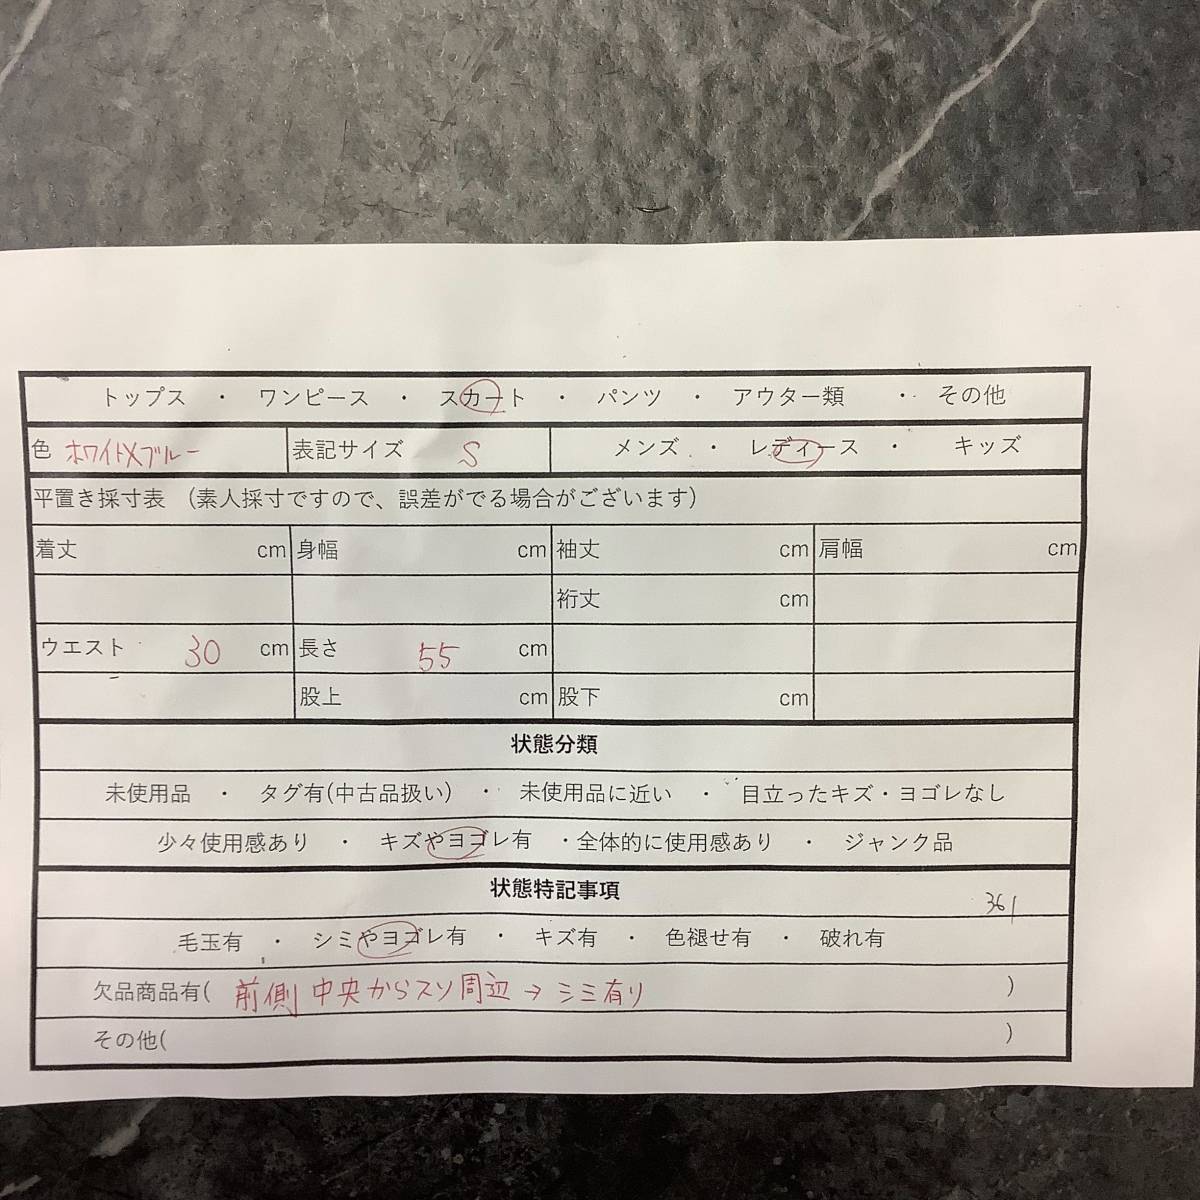 トップス ・ ワンピース ・ スカート ・ パンツ ・ アウター類 ・ その他
色 ホワイト×ブルー 表記サイズ S メンズ ・ レディース ・ キッズ
平置き採寸表 (素人採寸ですので、誤差がでる場合がございます)
着丈 cm 身幅 cm 袖丈 cm 肩幅 cm
裄丈 cm
ウエスト 30 cm 長さ 55 cm
股上 cm 股下 cm
状態分類
未使用品 ・ タグ有(中古品扱い) ・ 未使用品に近い ・ 目立ったキズ・ヨゴレなし
少々使用感あり ・ キズやヨゴレ有 ・全体的に使用感あり ・ ジャンク品
状態特記事項
361
毛玉有 ・ シミやヨゴレ有 ・ キズ有 ・ 色褪せ有 ・ 破れ有
欠品商品有( 前側 中央からスソ周辺 → シミ有り )
その他( )